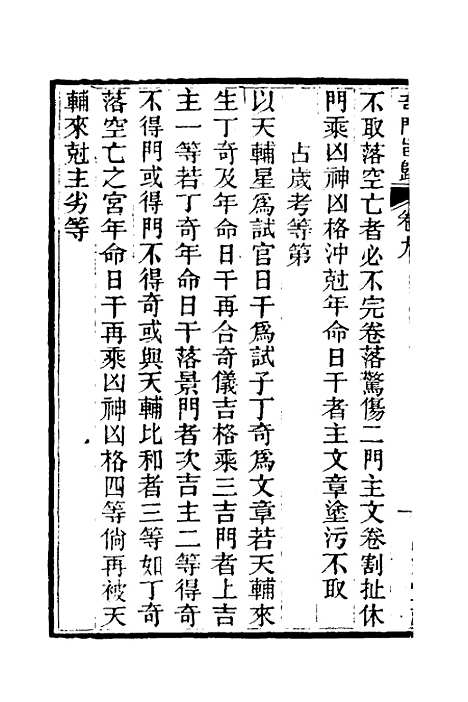 不取落空亡者必不完卷落驚傷二門主文卷割扯休
門乘凶神凶格沖尅年命日干者主文章塗污不取
占歲考等第
以天輔星為試官日干為試子丁奇為文章若天輔來
生丁奇及年命日干再合奇儀吉格乘三吉門者上吉
主一等若丁奇年命日干落景門者次吉主二等得奇
不得門或得門不得奇或與天輔比和者三等如丁奇
落空亡之宮年命日干再乘凶神凶格四等倘再被天
輔來尅主劣等